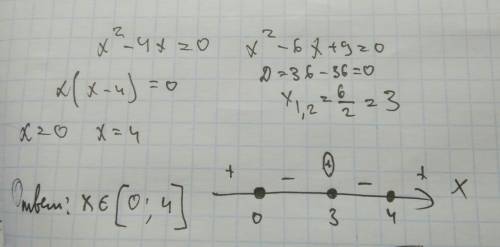 x² - 4x = 0
x(x - 4) = 0
x = 0 x = 4
x² - 6x + 9 = 0
D = 36 - 36 = 0
x₁,₂ = 6/2 = 3
Ответ: x ∈ [0; 4]
+ - ⊕ - + x
0 3 4